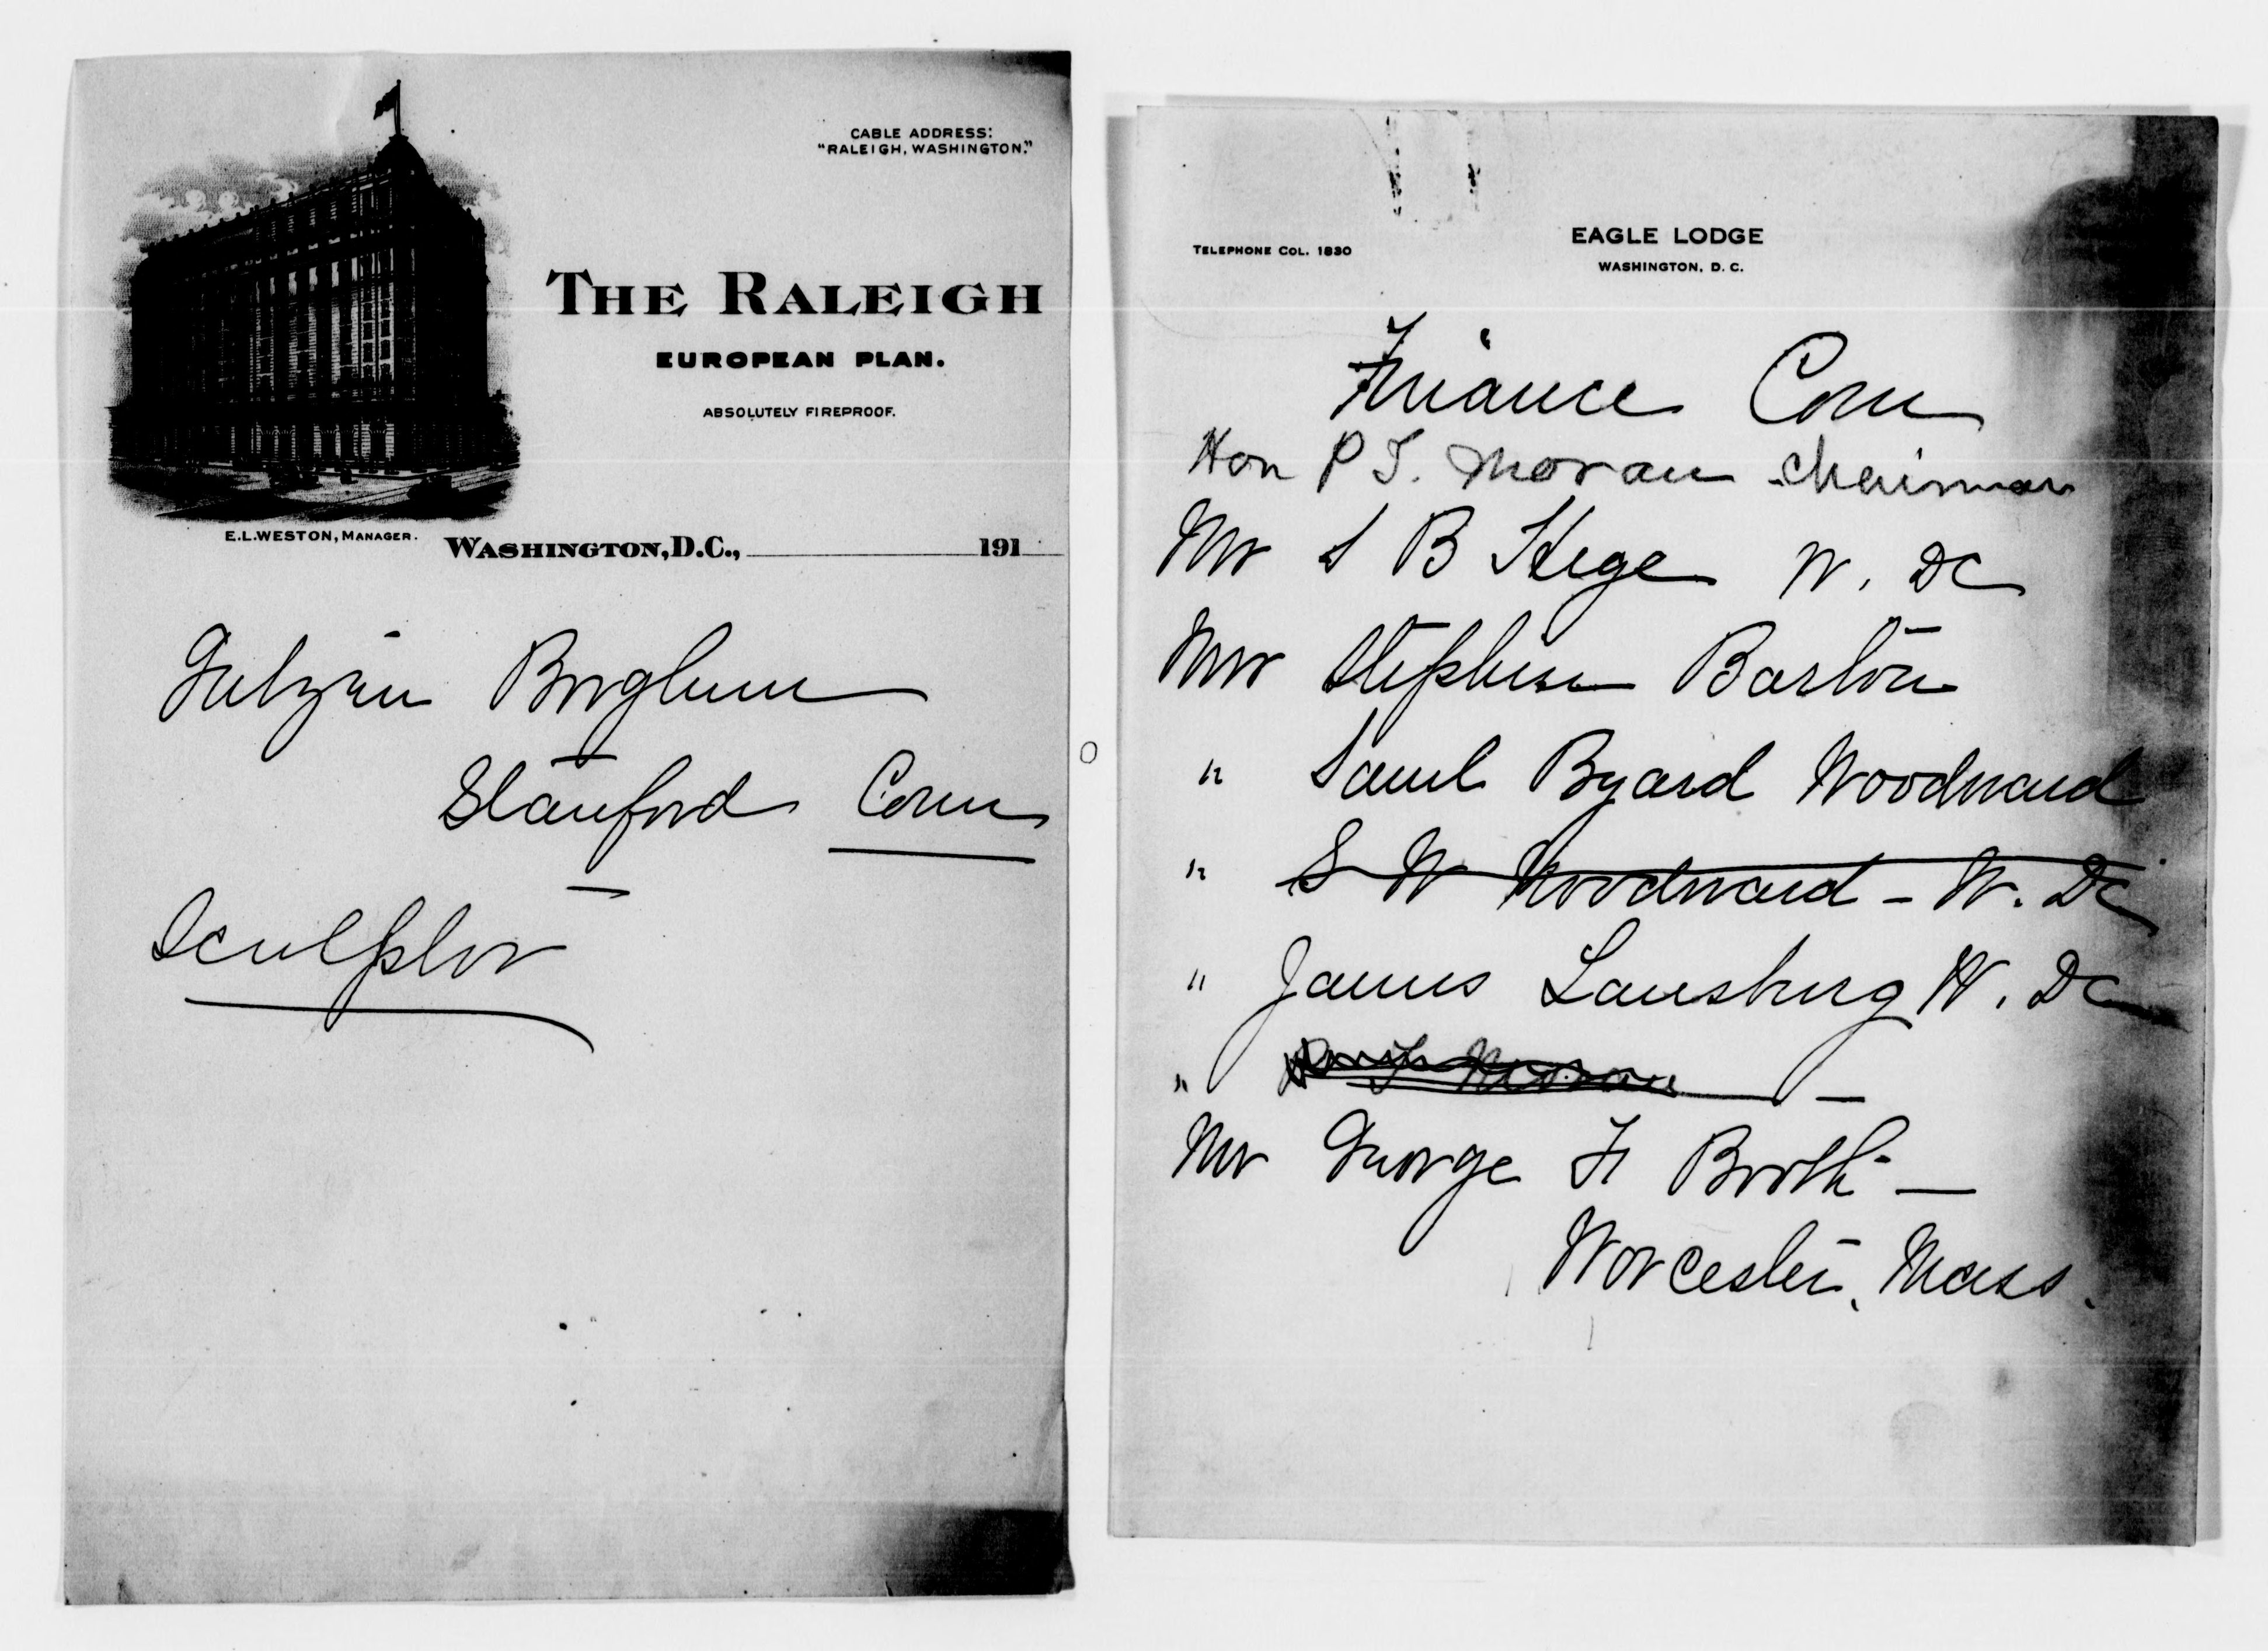 CABLE ADDRESS:
"RALEIGH, WASHINGTON."
THE RALEIGH
EUROPEAN PLAN.
ABSOLUTELY FIREPROOF.
E.L.WESTON, MANAGER.
WASHINGTON, D.C., 191
Gutzon Borglum
Stanford Conn
Sculptor
TELEPHONE COL. 1830
EAGLE LODGE
WASHINGTON, D. C.
Finance Com
Hon P T. Moran Chairman
Mr S B Hege W. DC
Mr Stephen Barton
" Saml Byard Woodward
" S W Woodward - W. DC
" James Lansburg W. DC
" Moran —
Mr George F Booth —
Worcester, Mass.